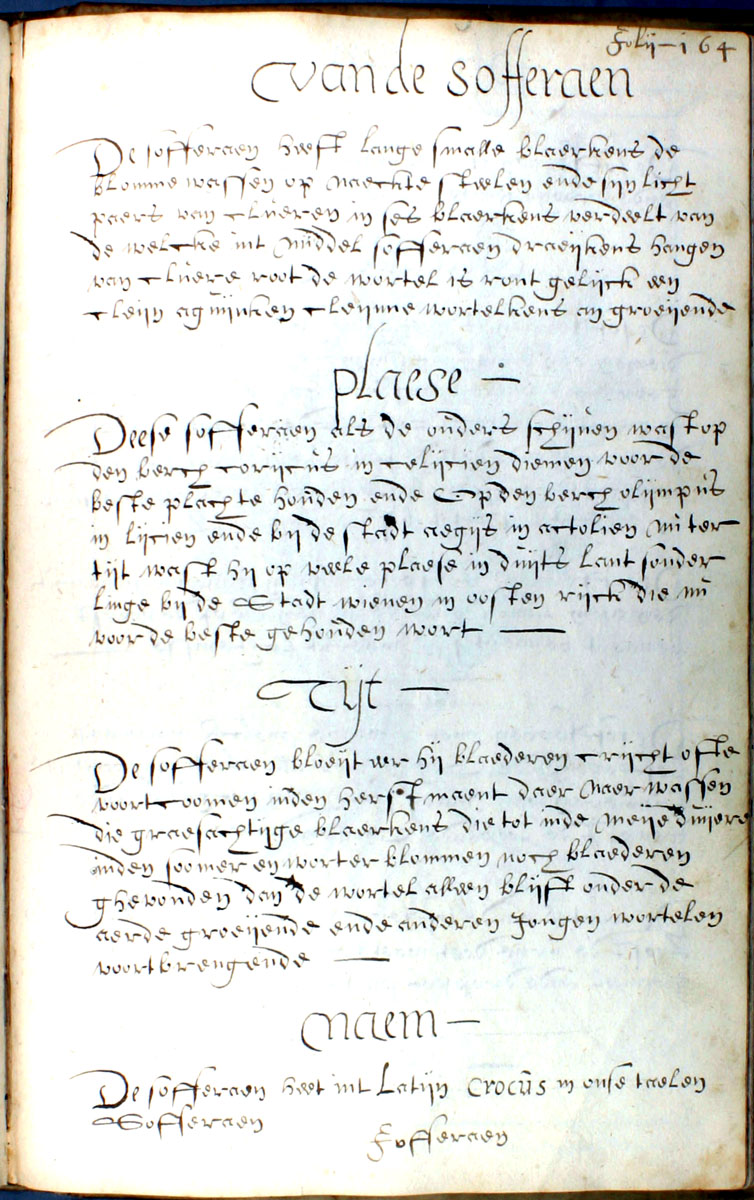 Folij - 164
van de sofferaen
De sofferaen heeft lange smalle blaerkens de
blomme wassen op naeckte stelen ende sijn licht
paers van clueren in ses blaerkens verdeelt van
de welcke int middel sofferaen draeijkens hangen
van cluere root de wortel is ront gelijck een
cleijn aguijnken cleijnne wortelkens an groeijende
plaese -
Deese sofferaen als de ouders schijnen wast op
den berch corijcus in celijcien diemen voor de
beste plachte houden ende Op den berch olijmpus
in lijcien ende bij de stadt aegijs in aetolien nu ter
tijt wast hij op veele plaese in duijts lant sonder
linge bij de Stadt wienen in oosten rijck die nu
voor de beste gehouden wort —
Tijt —
De sofferaen bloeijt eer hij blaederen crijcht ofte
voortcoomen inden herfst maent daer naer wassen
die graesachtijge blaerkens die tot inde meije duijere
inden soomer en worter blommen noch blaederen
ghevonden dan de wortel alleen blijft onder de
aerde groeijende ende anderen Jongen wortelen
voortbrengende —
naem —
De sofferaen heet int Latijn Crocus in onse taelen
Sofferaen
Sofferaen